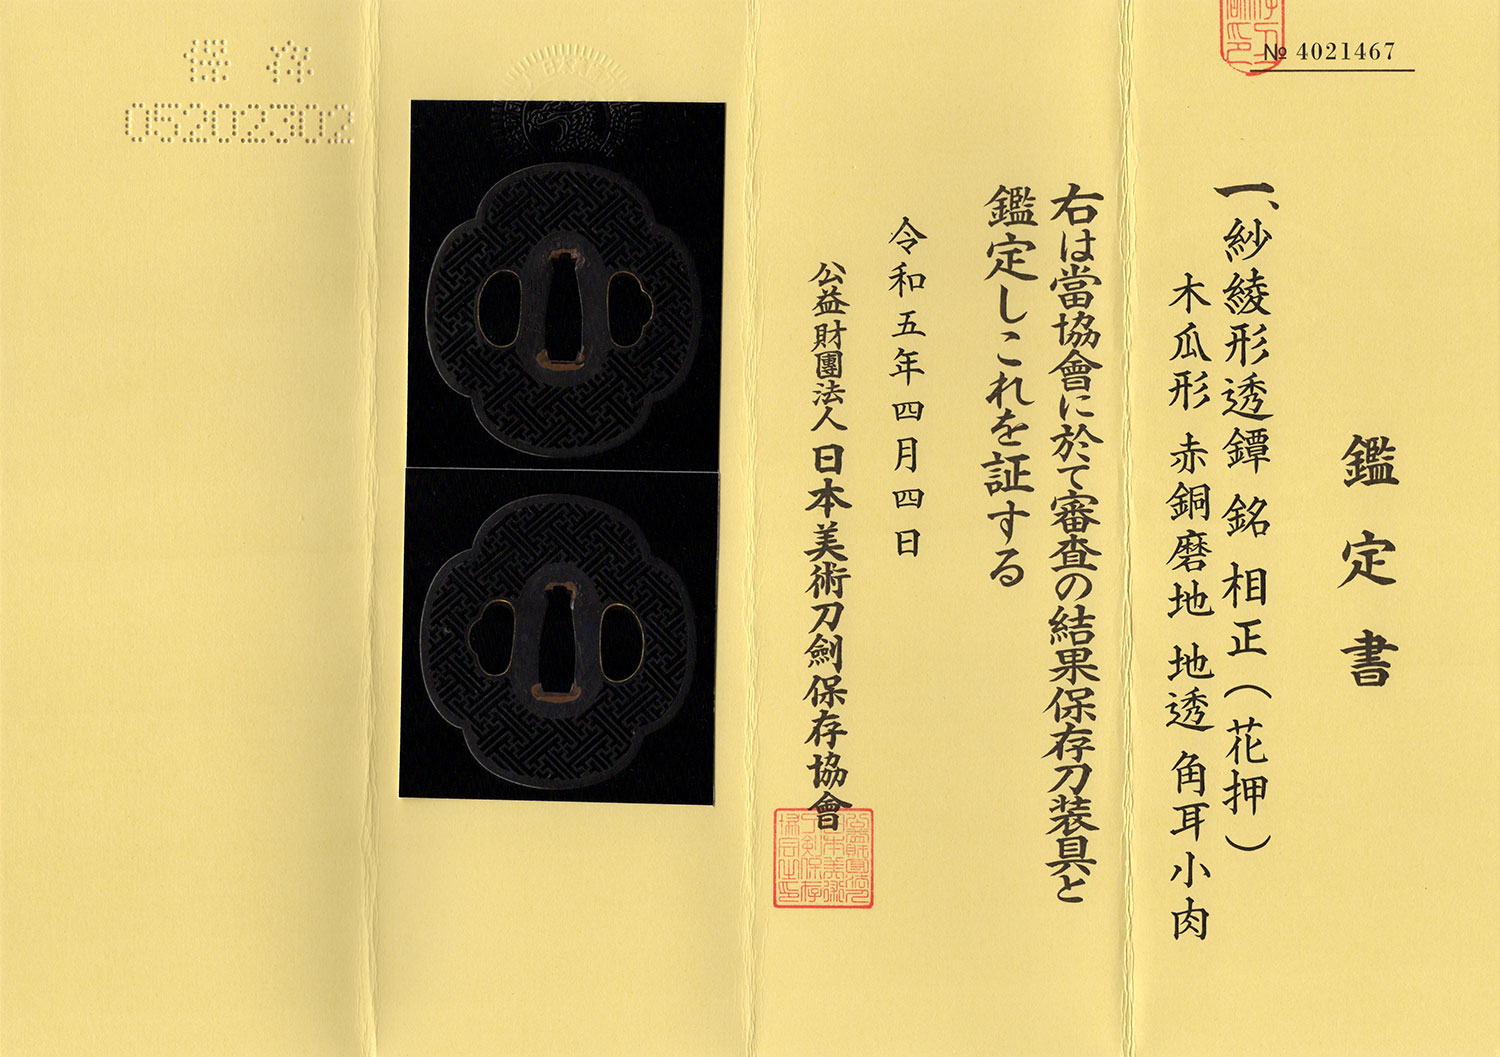 № 4021467
鑑定書
一、紗綾形透鐔 銘 相正(花押)
木瓜形 赤銅磨地 地透 角耳小肉
右は當協會に於て審査の結果保存刀装具と
鑑定しこれを証する
令和五年四月四日
公益財團法人 日本美術刀劍保存協會
保存
05202302